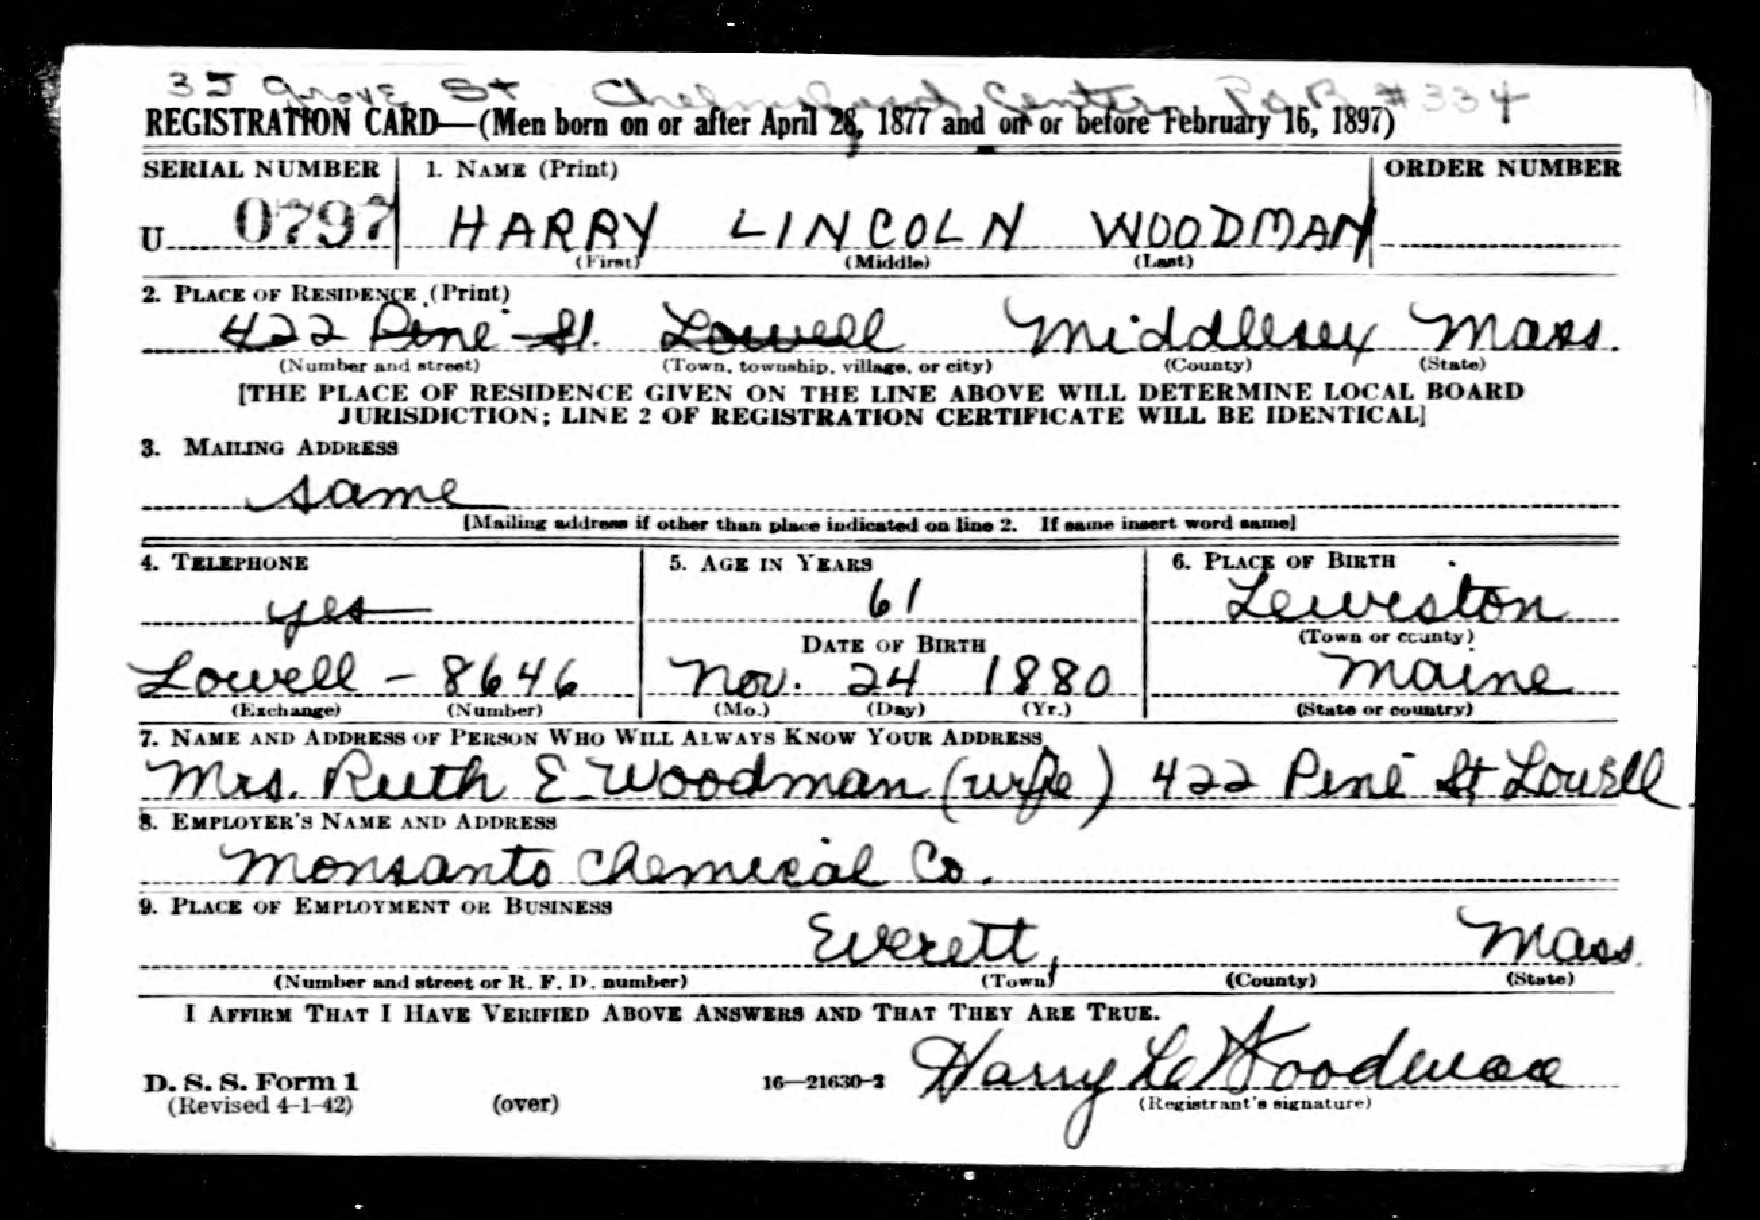 35 Grove St Chelmsford Center P.O.B #334
REGISTRATION CARD—(Men born on or after April 28, 1877 and on or before February 16, 1897)
SERIAL NUMBER 1. NAME (Print) ORDER NUMBER
U 0797 HARRY LINCOLN WOODMAN
(First) (Middle) (Last)
2. PLACE OF RESIDENCE (Print)
422 Pine St. Lowell Middlesex Mass.
(Number and street) (Town, township, village, or city) (County) (State)
[THE PLACE OF RESIDENCE GIVEN ON THE LINE ABOVE WILL DETERMINE LOCAL BOARD
JURISDICTION; LINE 2 OF REGISTRATION CERTIFICATE WILL BE IDENTICAL]
3. MAILING ADDRESS
same
[Mailing address if other than place indicated on line 2. If same insert word same]
4. TELEPHONE 5. AGE IN YEARS 6. PLACE OF BIRTH
yes 61 Lewiston
DATE OF BIRTH (Town or county)
Lowell - 8646 Nov. 24 1880 Maine
(Exchange) (Number) (Mo.) (Day) (Yr.) (State or country)
7. NAME AND ADDRESS OF PERSON WHO WILL ALWAYS KNOW YOUR ADDRESS
Mrs. Ruth E. Woodman (wife) 422 Pine St Lowell
8. EMPLOYER'S NAME AND ADDRESS
Monsanto Chemical Co.
9. PLACE OF EMPLOYMENT OR BUSINESS
Everett, Mass.
(Number and street or R. F. D. number) (Town) (County) (State)
I AFFIRM THAT I HAVE VERIFIED ABOVE ANSWERS AND THAT THEY ARE TRUE.
D. S. S. Form 1 16—21630-2 Harry L. Woodman
(Revised 4-1-42) (over) (Registrant's signature)